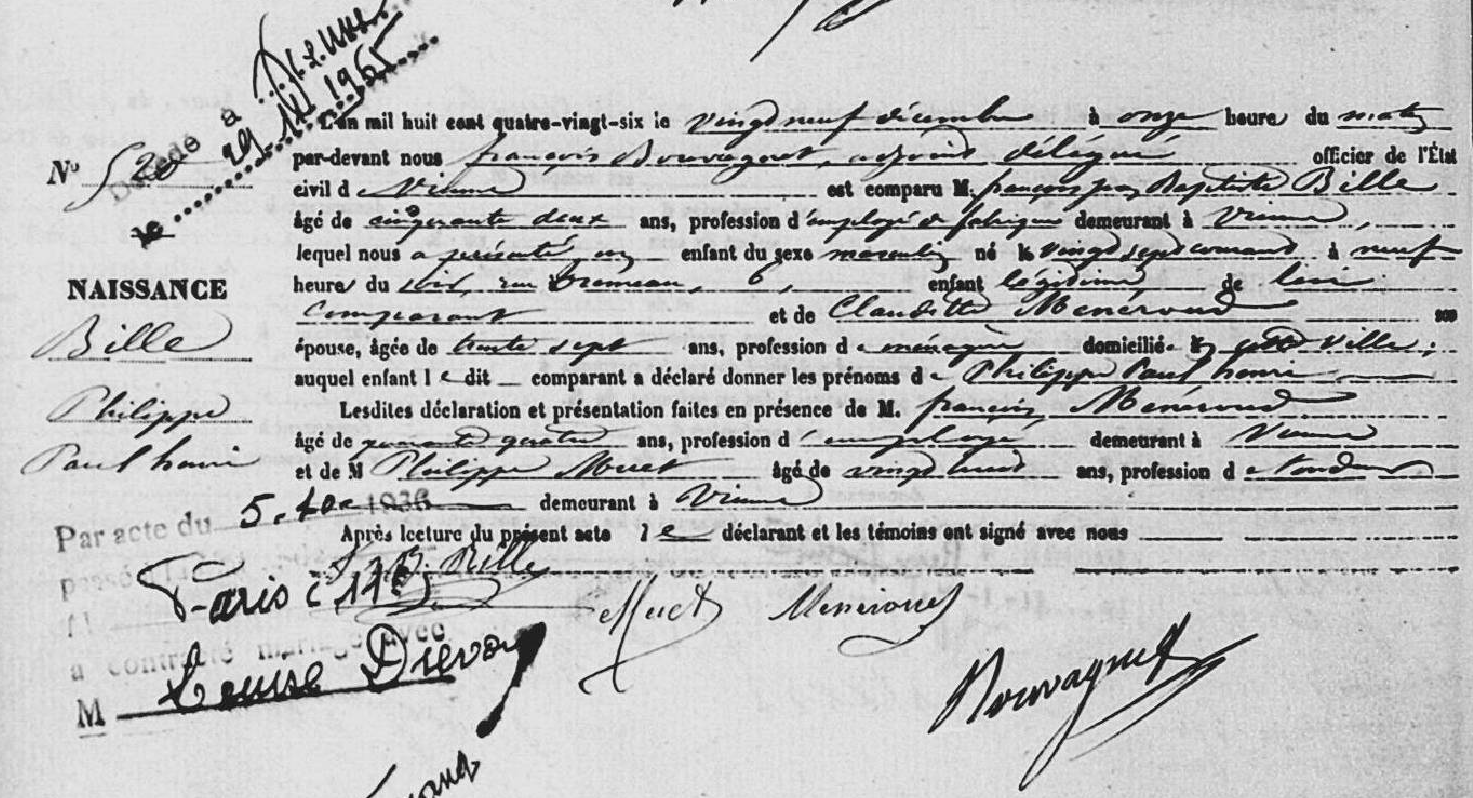 Décédé à
le 29.12.1965
L'an mil huit cent quatre-vingt-six le vingt neuf décembre à onze heures du matin
N° 520
par-devant nous françois Rouvagnet, adjoint délégué officier de l'État
civil de Vienne est comparu M. françois jean Baptiste Bille
âgé de cinquante deux ans, profession d'employé de fabrique demeurant à Vienne,
lequel nous a présenté un enfant du sexe masculin né le vingt sept courant à neuf
NAISSANCE
heures du soir, rue 6, enfant légitime de lui
comparant et de Claudette Menéroud son
Bille
épouse, âgée de trente sept ans, profession de ménagère domiciliée en cette Ville;
auquel enfant le dit comparant a déclaré donner les prénoms de Philippe Paul henri
Philippe
Lesdites déclaration et présentation faites en présence de M. françois Menéroud
âgé de quatre ans, profession d'employé demeurant à Vienne
Paul henri
et de M Philippe Muet âgé de vingt huit ans, profession de tondeur
demeurant à Vienne
Par acte du 5. 1936
Après lecture du présent acte le déclarant et les témoins ont signé avec nous
J. B. Bille
Paris 11e
Muet Meneroud
a contracté mariage avec
M Louise Drevon
Rouvagnet